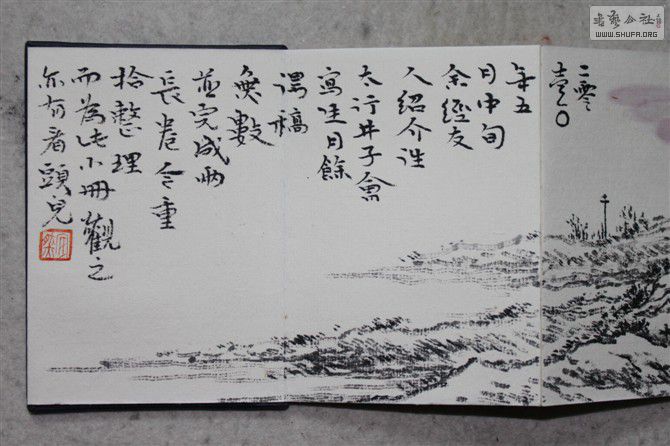 二零
壹〇
年五
月中旬
余經友
人紹介進
太行井子會
寫生月餘
得稿
無數
並完成兩
長卷今重
拾整理
而為此小冊觀之
亦有看頭兒
書艺公社
WWW.SHUFA.ORG